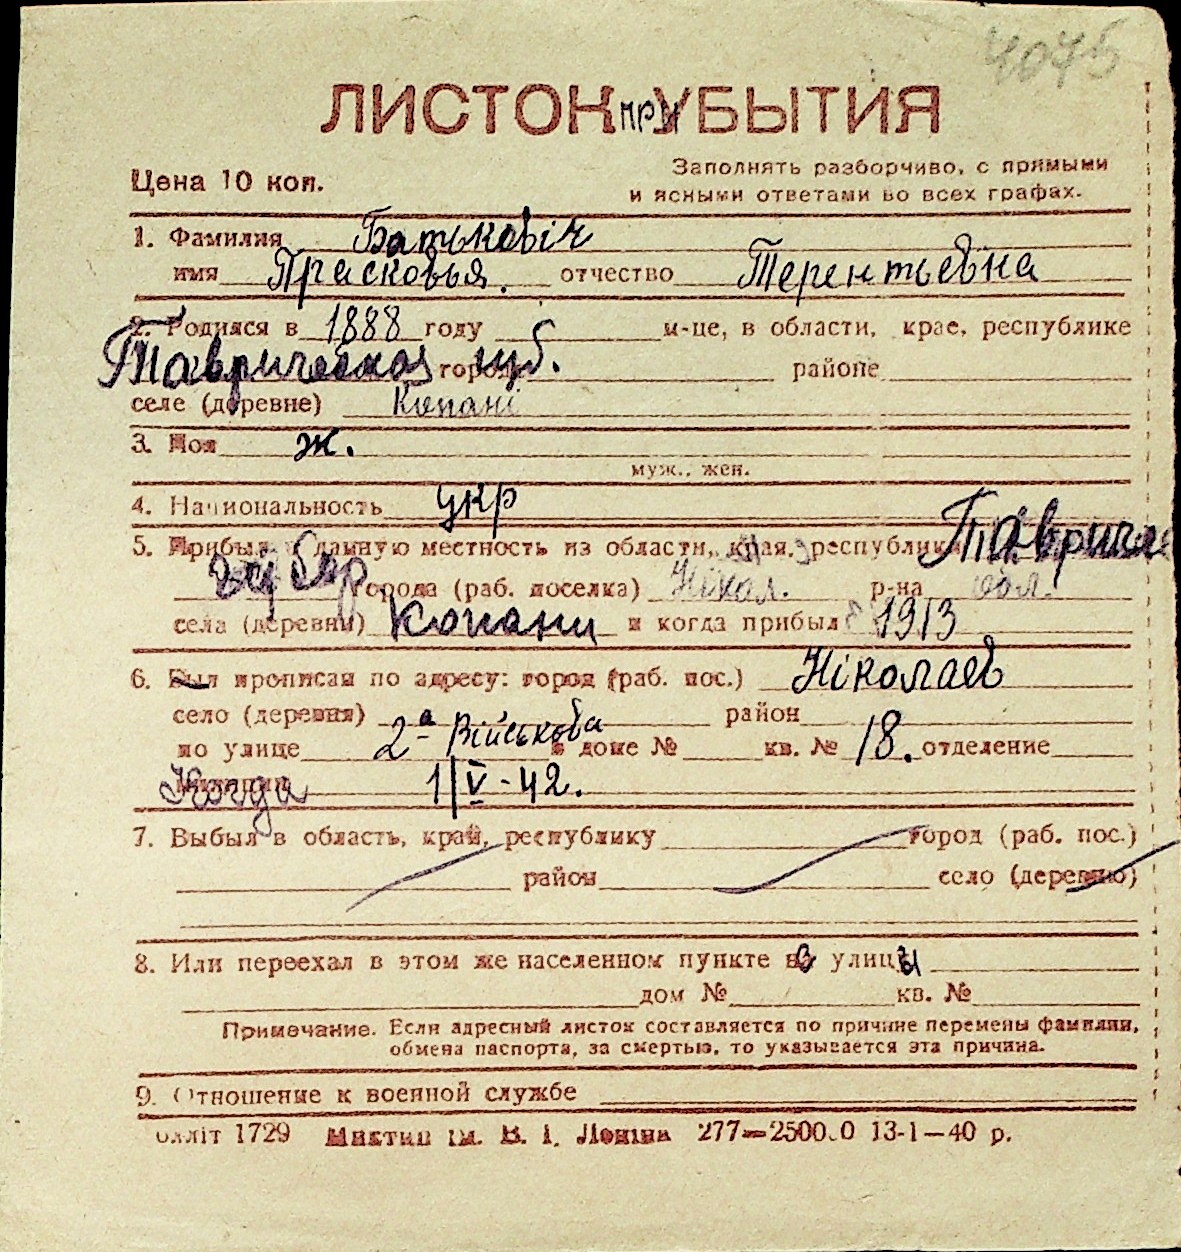 4075
ЛИСТОК при УБЫТИЯ
Цена 10 коп.
Заполнять разборчиво, с прямыми
и ясными ответами во всех графах.
1. Фамилия Батьковіч
имя Прасковья. отчество Терентьевна
2. Родился в 1888 году м-це, в области, крае, республике
Таврическая губ. городе районе
селе (деревне) Копані
3. Пол ж.
муж., жен.
4. Национальность укр
5. Прибыл в данную местность из области, края, республики Тавричес
губер города (раб. поселка) Нікол. р-на обл.
села (деревни) Копани и когда прибыл с 1913
6. Был прописан по адресу: город (раб. пос.) Ніколаев
село (деревня) район
по улице 2а Військова в доме № кв. № 18. отделение
Когда 1/V-42.
7. Выбыл в область, край, республику город (раб. пос.)
район село (деревню)
8. Или переехал в этом же населенном пункте с улицы
дом № кв. №
Примечание. Если адресный листок составляется по причине перемены фамилии,
обмена паспорта, за смертью, то указывается эта причина.
9. Отношение к военной службе
олліт 1729 Миктип ім. В. І. Леніна 277—250000 13-1—40 р.